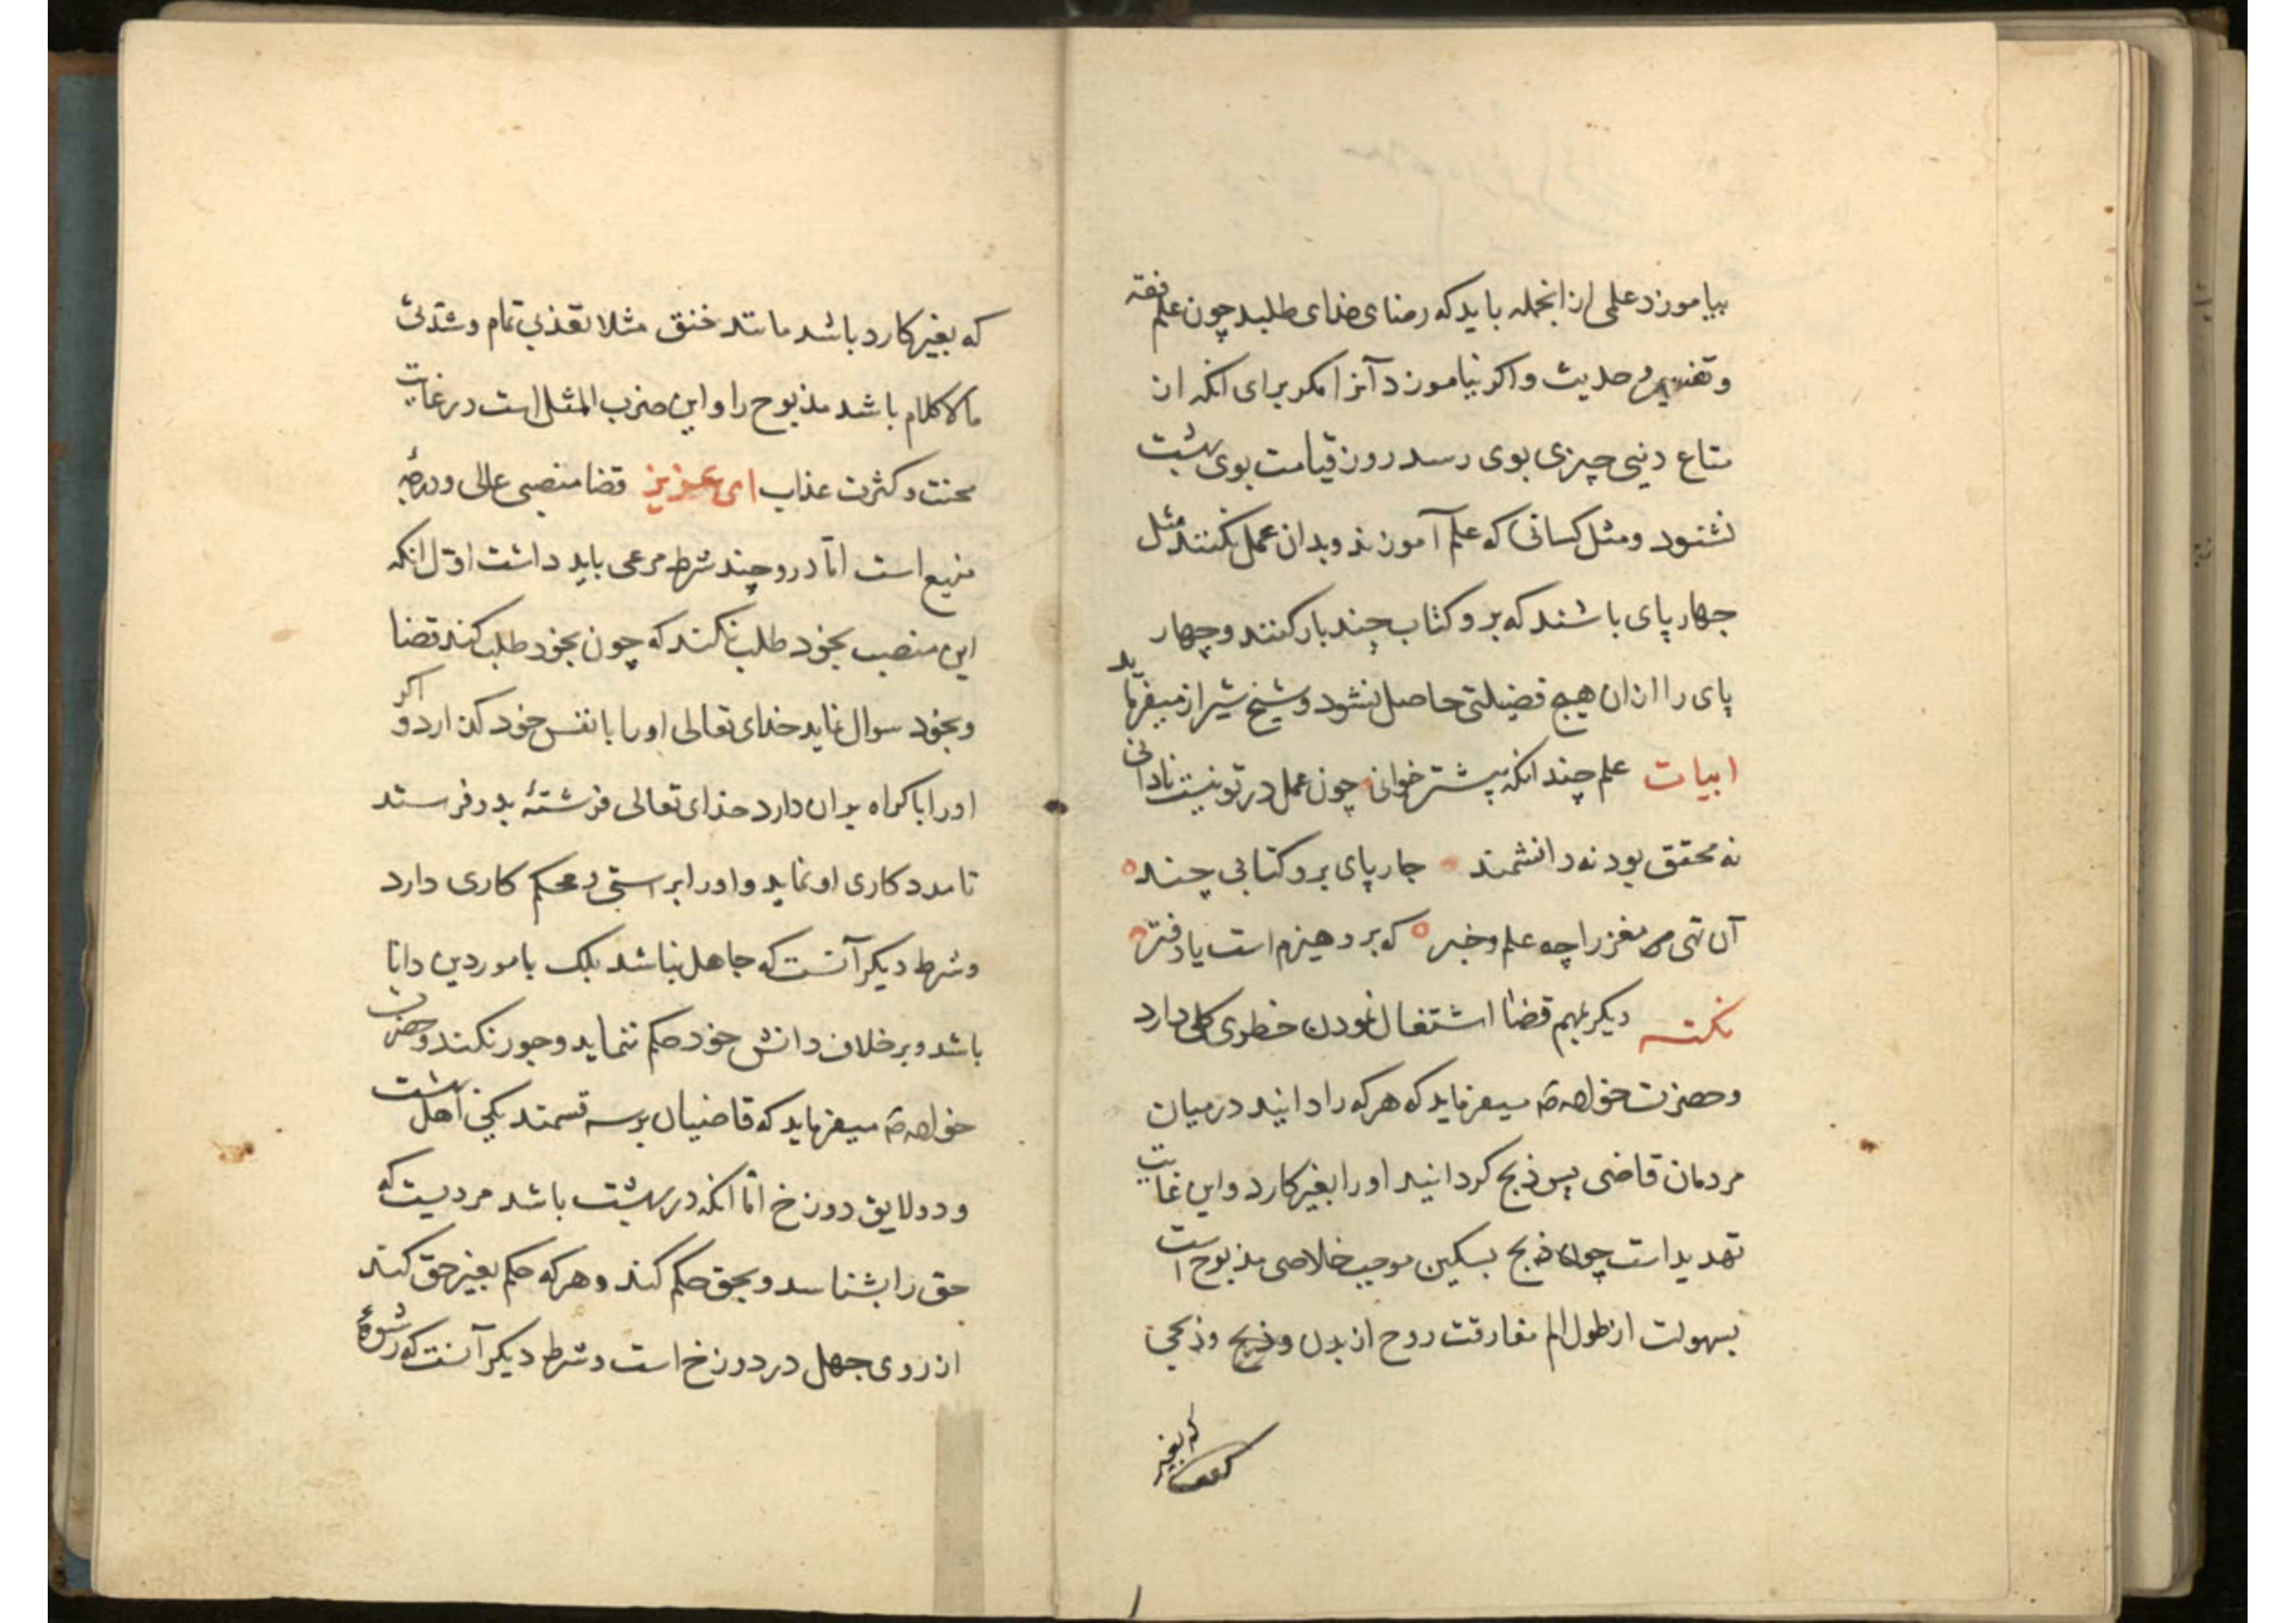 بیاموزد علمی از انجمله باید که رضای خدای طلبد چون علم فقه
و تفسیر و حدیث و اکر نیاموزد آنرا مکر برای انکه از
متاع دنیی چیزی بوی رسد روز قیامت بوی بهشت
نشنود و مثل کسانی که علم آموزند و بدان عمل نکنند مثل
جهار پای باشند که برو کتاب چند بار کنند و چهار
پای را از ان هیچ فضیلتی حاصل نشود و شیخ شیراز میفرماید
ابیات علم چند انکه پیشتر خوانی چون عمل در تو نیست نادانی
نه محقق بود نه دانشمند جارپای برو کتابی چند
آن تهی مغز را چه علم و خبر که برو هیزم است یا دفتر
نکته دیکر بمهم قضا اشتغال نمودن خطری کلی دارد
و حضرت خواجه میفرماید که هر که را دانید در میان
مردمان قاضی پس ذبح کردانید او را بغیر کارد و این غایت
تهدید است چون ذبح بسکین موجب خلاصی مذبوح است
بسهولت از طول الم مفارقت روح از بدن و ذبح وذبحی
که بغیر
که بغیر کارد باشد مانند خنق مثلا تعذیبی تمام و شدتی
ما لا کلام باشد مذبوح را و این ضرب المثل است در غایت
محنت و کثرت عذاب ای عزیز قضا منصبی عالی و درجهٔ
منیع است امّا درو چند شرط مرعی باید داشت اوّل انکه
این منصب بخود طلب نکند که چون بخود طلب کند قضا
و بخود سوال نماید خدای تعالی او را با نفس خود کذارد و اکر
او را باکراه بران دارد خدای تعالی فرشتهٔ بدو فرستد
تا مدد کاری او نماید و او را بر استی و محکم کاری دارد
و شرط دیکر آنست که جاهل نباشد بلک بامور دین دانا
باشد و بر خلاف دانش خود حکم ننماید و جور نکند و حضرت
خواجه میفرماید که قاضیان بر سه قسمند یکی اهل بهشت
و دو لایق دوزخ امّا انکه در بهشت باشد مردیست که
حق را بشناسد و بحق حکم کند و هر که حکم بغیر حق کند
از روی جهل در دوزخ است و شرط دیکر آنست که رشوهٔ